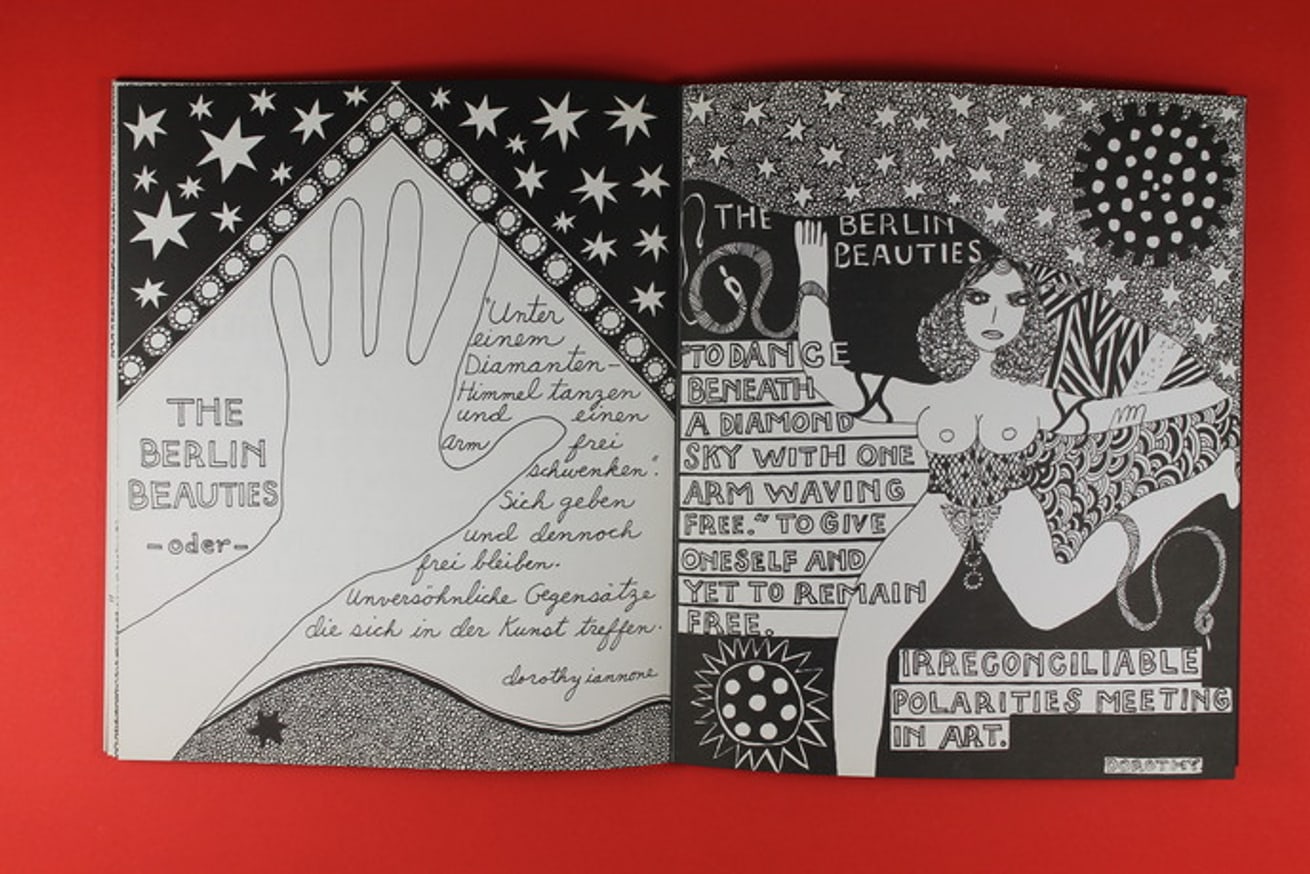 THE
BERLIN
BEAUTIES
-oder-
"Unter
einem
Diamanten-
Himmel tanzen
und einen
arm frei
schwenken".
Sich geben
und dennoch
frei bleiben.
Unversöhnliche Gegensätze
die sich in der Kunst treffen.
dorothy iannone
THE BERLIN
BEAUTIES
"TO DANCE
BENEATH
A DIAMOND
SKY WITH ONE
ARM WAVING
FREE." TO GIVE
ONESELF AND
YET TO REMAIN
FREE.
IRRECONCILIABLE
POLARITIES MEETING
IN ART.
DOROTHY